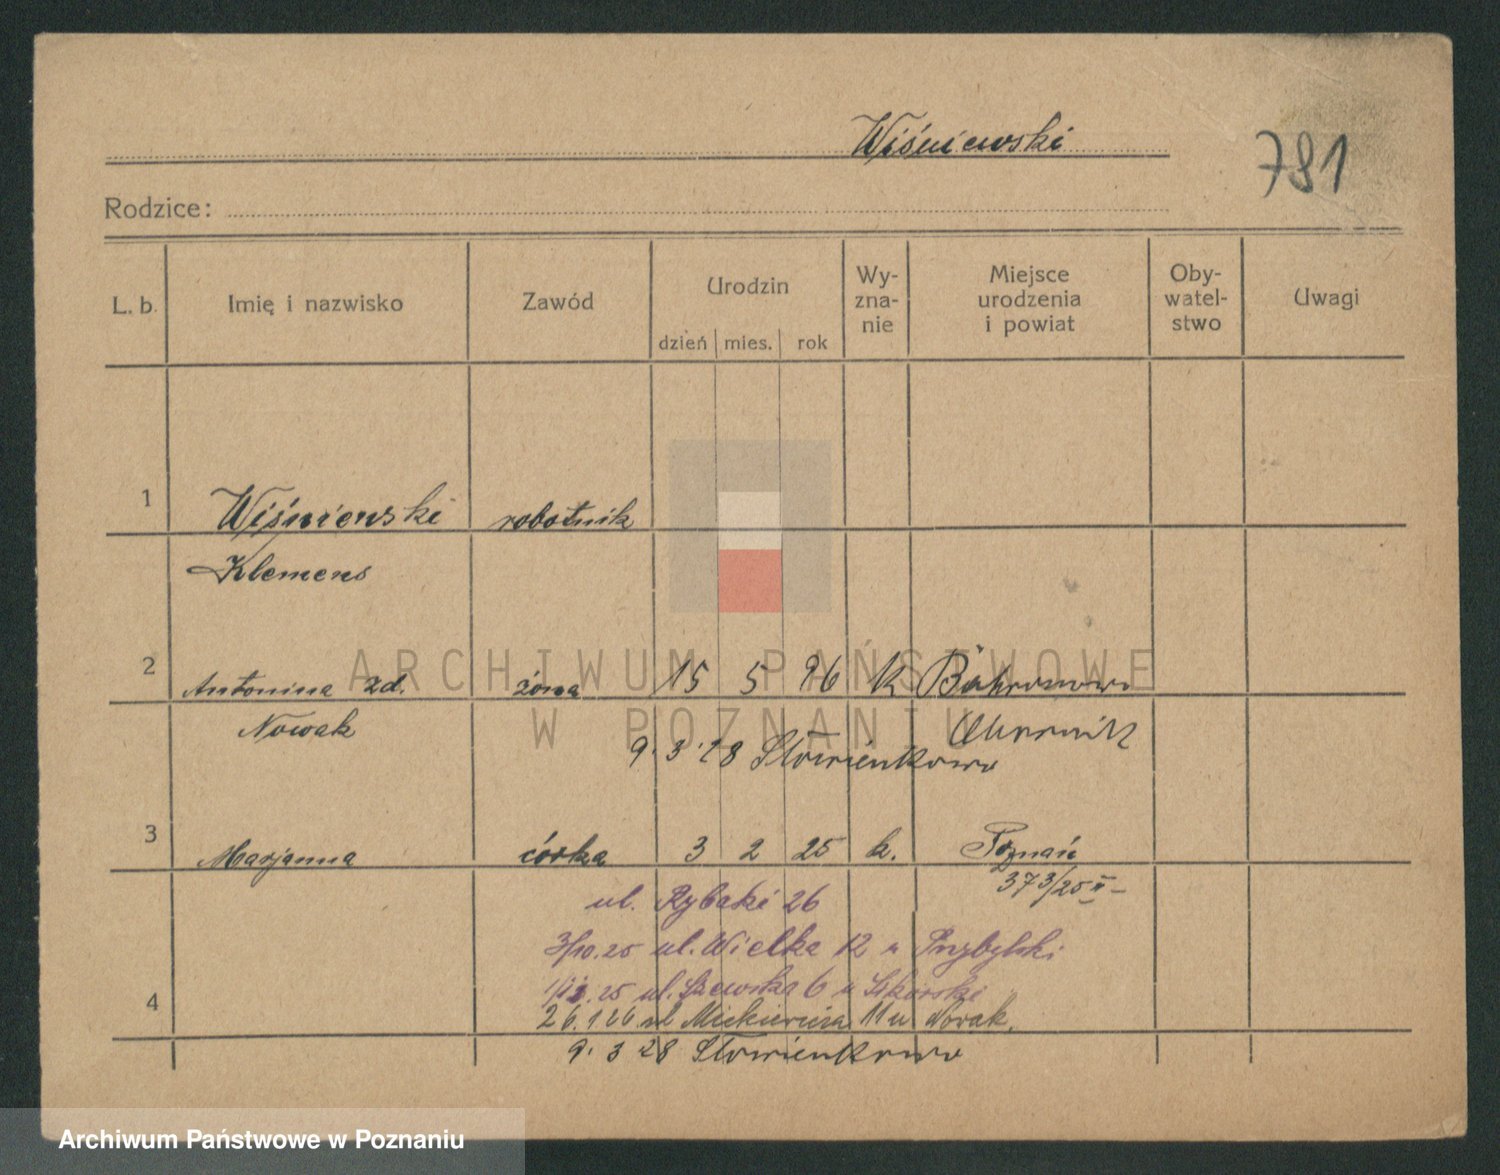 Wiśniewski
781
Rodzice:
L. b. Imię i nazwisko Zawód Urodzin Wy- Miejsce Oby- Uwagi
zna- urodzenia watel-
dzień mies. rok nie i powiat stwo
1 Wiśniewski robotnik
Klemens
2 Antonina zd. żona 15 5 96 k
Nowak
9. 3 28 Słowienkowo
3 Marjanna córka 3 2 25 k. Poznań
373/25 II
ul. Rybaki 26
3/10.25 ul. Wielka 12 u Przybylski
25 ul. Szewska 6 u Sikorski
4
26.1.26 ul Mickiewicza 11 u Nowak.
9. 3 28 Słowienkowo
ARCHIWUM PAŃSTWOWE
W POZNANIU
Archiwum Państwowe w Poznaniu